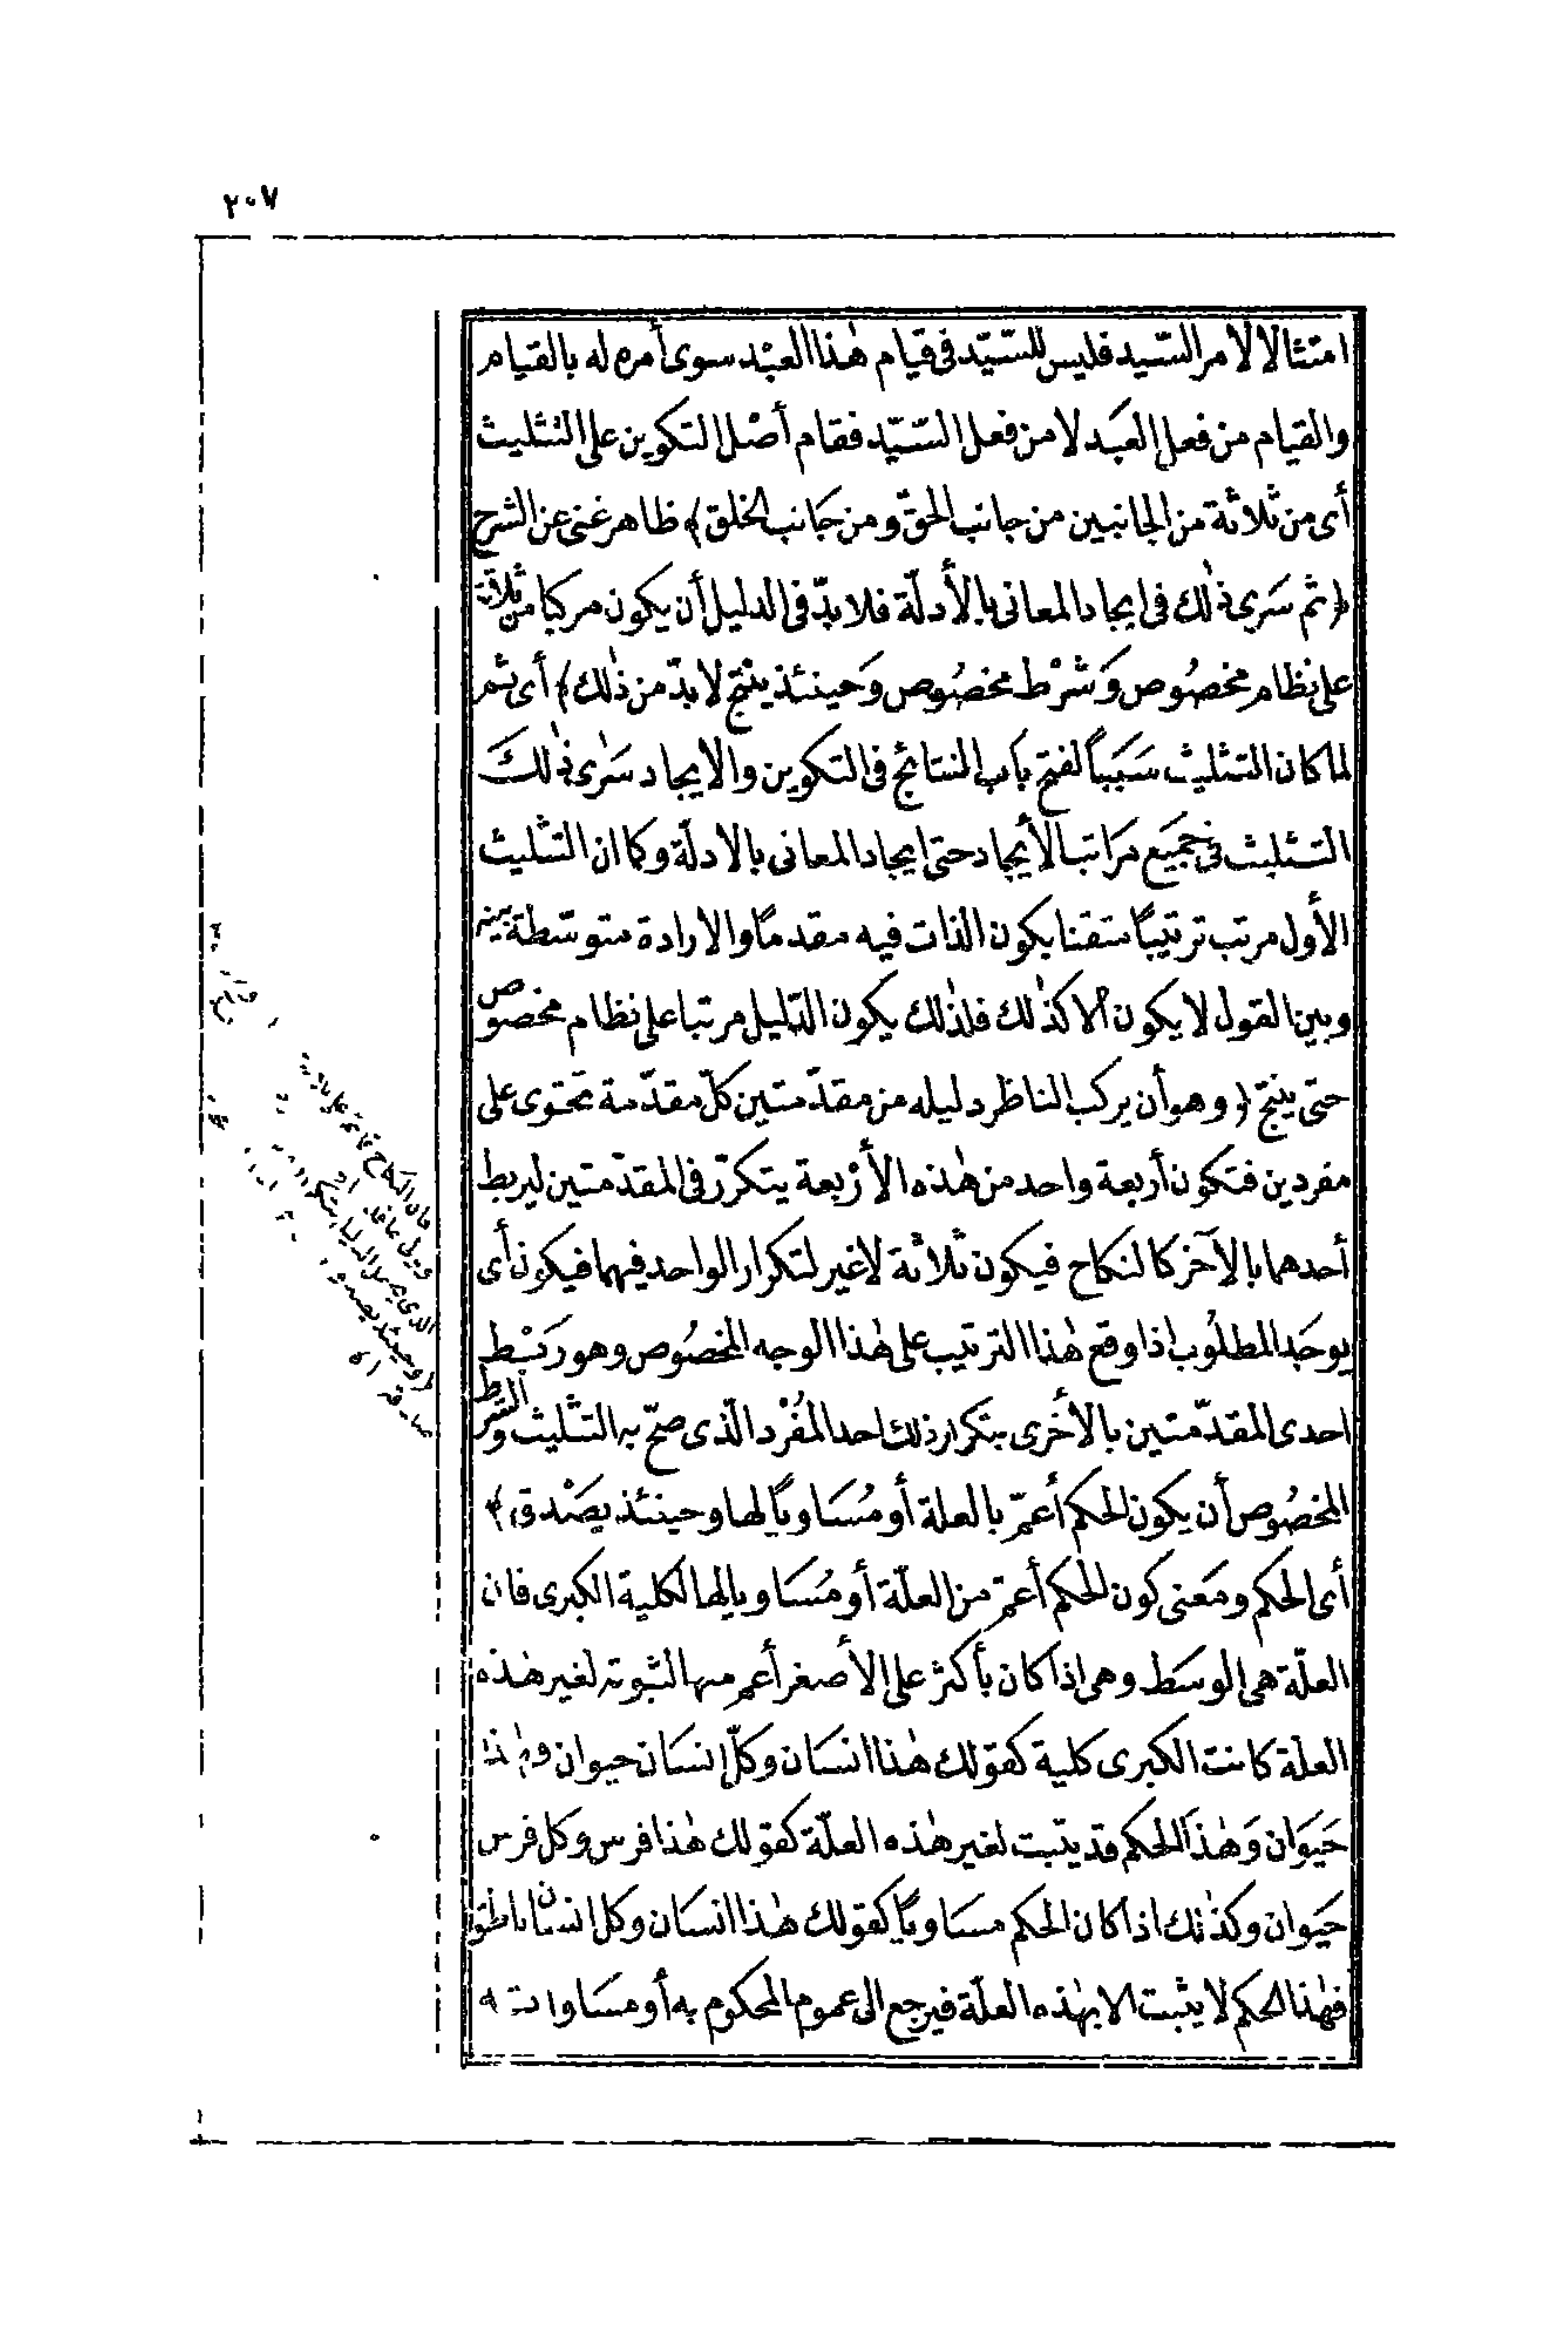 ٢٠٧
امتثالا لأمر السّيد فليس للسّيّد فى قيام هٰذا العبْد سوى أمره له بالقيام
والقيام من فعل العبَد لا من فعل السّيّد فقام أصْل التكوين على التثليث
أى من ثلاثة من الجانبين من جانب الحقّ ومن جَانب الخلق﴾ ظاهر غنى عن الشرح
﴿ثم سَرى ذٰلك فى ايجاد المعانى بالأدلّة فلا بدّ فى الدليل أن يكون مركبا من ثلاثة
على نظام مخصُوص وَشرْط مخصُوص وَحينئذ ينتج لا بدّ من ذٰلك﴾ أى ثم
لما كان التثليث سَبَباً لفتح باب النتائج فى التكوين والايجاد سَرٰى ذٰلكَ
التثليث فى جميَع مَراتب الأيجاد حتى ايجاد المعانى بالادلّة وكما ان التثليث
الأول مرتب ترتيبًا متقنا يكون الذات فيه مقدمًا والارادة متوسّطة بينه
وبين القول لا يكون الا كذٰلك فلذٰلك يكون الدّليل مرتبا على نظام مخصوص
حتى ينتج ﴿وهو أن يركب الناظر دليله من مقدّمتين كلّ مقدّمة تحتوى على
مفردين فتكون أربعة واحد من هٰذه الأرْبعة يتكرّر فى المقدّمتين ليربط
أحدهما بالآخر كالنكاح فيكون ثلاثة لا غير لتكرار الواحد فيهما فيكون أى
يوجَد المطلُوب اذا وقع هٰذا الترتيب على هٰذا الوجه المخصُوص وهو رَبْط
احدى المقدّمتين بالأخرى بتكرار ذلك احد المفْرد الّذى صحّ به التثليث والشرط
المخصُوص أن يكون الحكم أعمّ بالعلة أو مُسَاويًا لها وحينئذ يصَْدق﴾
أى الحكم ومَعنى كون الحكم أعمّ من العلّة أو مُسَاويا لها لكلية الكبرى فان
العلّة هى الوسَط وهى اذا كان بأكثر على الأصغر أعم منها لثبوته لغير هٰذه
العلة كانت الكبرى كلية كقولك هٰذا انسَان وكلّ انسَان حيوان وهٰذا
حَيَوَان وَهٰذَا الحكم قد يثبت لغير هٰذه العلّة كقولك هٰذا فرس وكل فرس
حَيوان وكذٰلك اذا كان الحكم مسَاويًا كقولك هٰذا انسَان وكل انسان ناطق
فهٰذا الحكم لا يثبت الا بهٰذه العلّة فيرجع الى عموم المحكوم به أو مسَاواته
فان النكاح